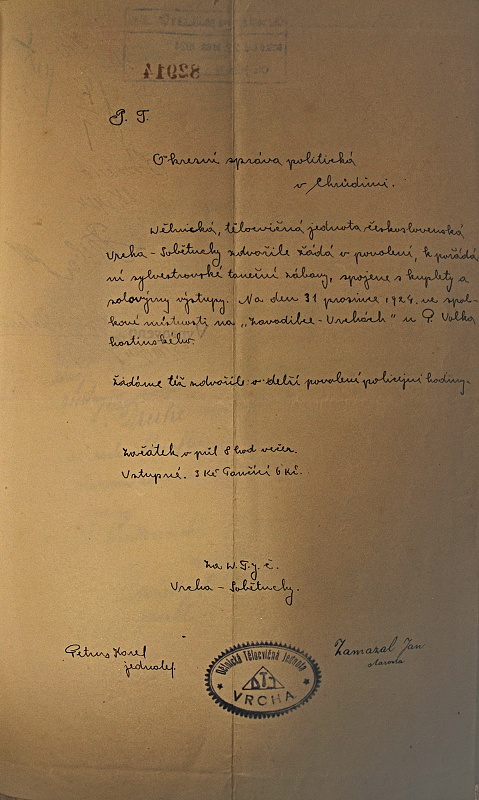 82914
P. T.
Okresní správa politická
v Chrudimi.
Dělnická, tělocvičná jednota československá
Vrcha - Sobětuchy zdvořile žádá o povolení, k pořádá
ní sylvestrovské taneční zábavy, spojené s kuplety a
solovými výstupy. Na den 31 prosince 1924. ve spol-
kové místnosti na „Zavodilce - Vrchách" u P. Volka
hostinského.
Žádáme též zdvořile o delší povolení policejní hodiny.
Začátek v půl 8 hod večer.
Vstupné. 3 Kč Tančící 6 Kč.
Za D. T. j. č.
Vrcha - Sobětuchy.
Petrus Karel
jednatel
Zamazal Jan
starosta
Dělnická Tělocvičná Jednota
DTJ
VRCHA